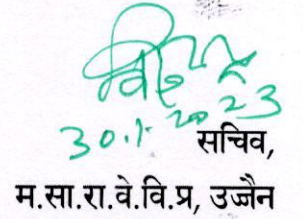 30.1.2023
सचिव,
म.सा.रा.वे.वि.प्र, उज्जैन